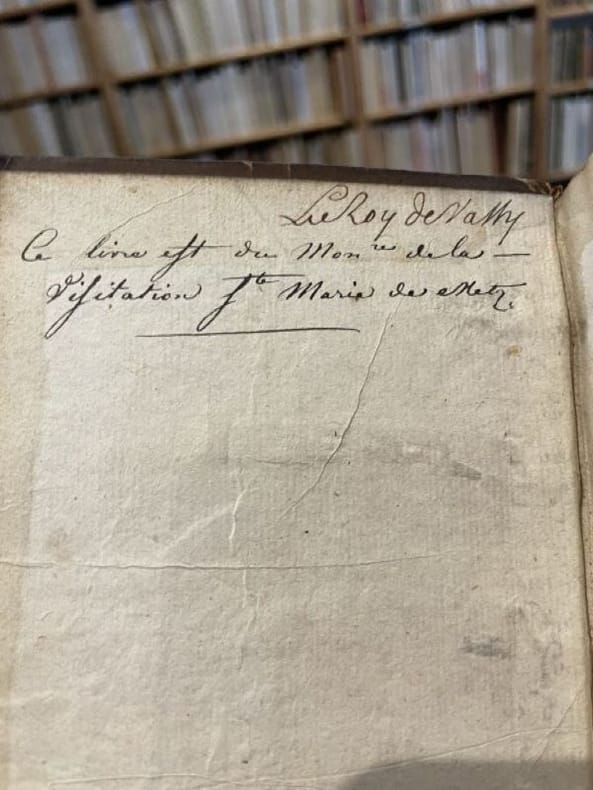 LeRoy de Vassy
Ce livre est du Mon.re de la —
Visitation Ste Marie de Metz.